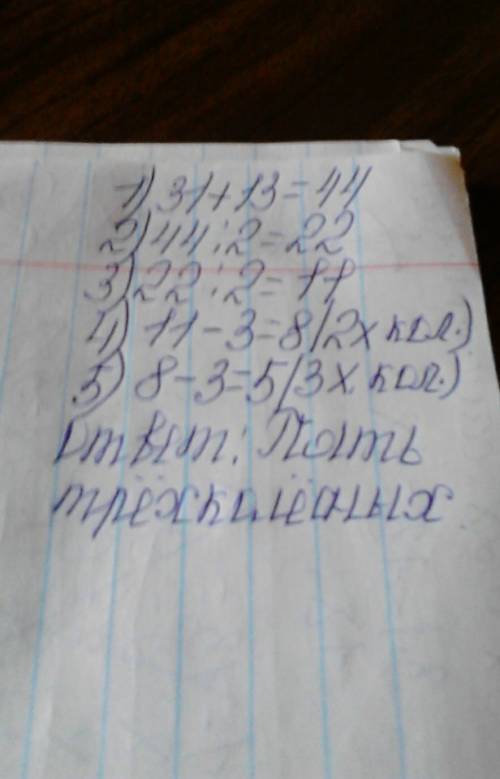 1) 31+13=44
2) 44:2=22
3) 22:2=11
4) 11-3=8(2х кол.)
5) 8-3=5(3х кол.)
Ответ: Пять
трёхколёсных